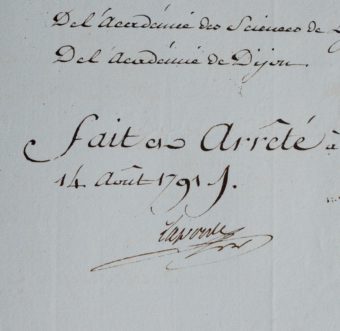 De l'Académie des Sciences de
De l'Académie de Dijon.
fait et Arrêté à
14 Août 1791 ./.
Laporte